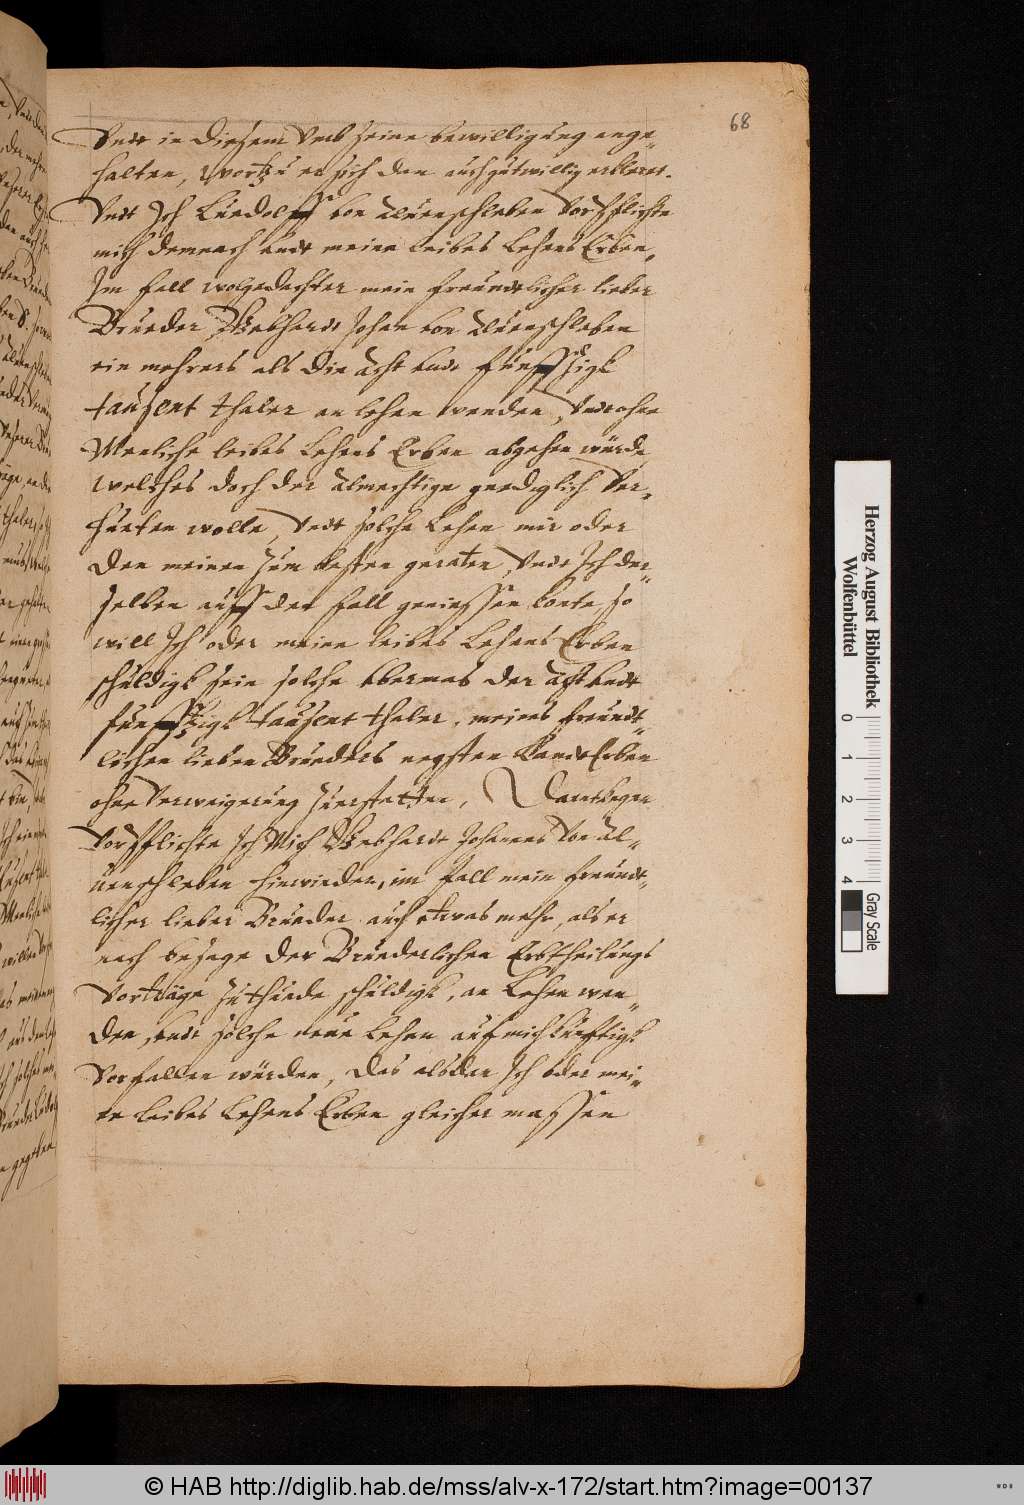 68
Vndt in diesem Vmb seine bewilligung ange-
halten, Wortzu er sich dan auch gutwillig erkleret.
Vndt Ich Luedolff von Aluenschleben Vorpflichte
mich demnach vndt meine leibes Lehens Erben,
Im fall wolgedachter mein freundtlicher lieber
Brueder Gebhardt Johan von Aluenschleben
ein mehrers als die acht vndt funffzigk
tausent thaler an lehen wenden, Vndt ohne
Menliche leibes Lehens Erben abgehen würde
welches doch der Almechtige gnediglich Ver-
hueten wolle, Vndt solche Lehen mir oder
den meinen zum besten geraten, Vndt Ich der-
selben auff den fall geniessen konte, so
will Ich oder meine leibes Lehens Erben
schuldigk sein solche obermas der acht vndt
funffzigk tausent thaler, meines freundt-
lichen lieben Brueders negsten Landt Erben
ohne Verweigerung zuerstatten, Dartkegen
Vorpflichte Ich Mich Gebhardt Johannes Von Al-
uenschleben hinwieder, im fall mein freundt-
licher lieber Brueder auch etwas mehr, als er
nach besage der Brüederlichen Erbtheilungs
Vorträge zuthuende schuldigk, an Lehen wen-
den, vndt solche neue Lehen auf mich kunftigk
Vorfallen würden, Das alsdan Ich oder mei-
ne leibes Lehens Erben gleicher massen
Herzog August Bibliothek
Wolfenbüttel
0 1 2 3 4
Gray Scale
© HAB http://diglib.hab.de/mss/alv-x-172/start.htm?image=00137